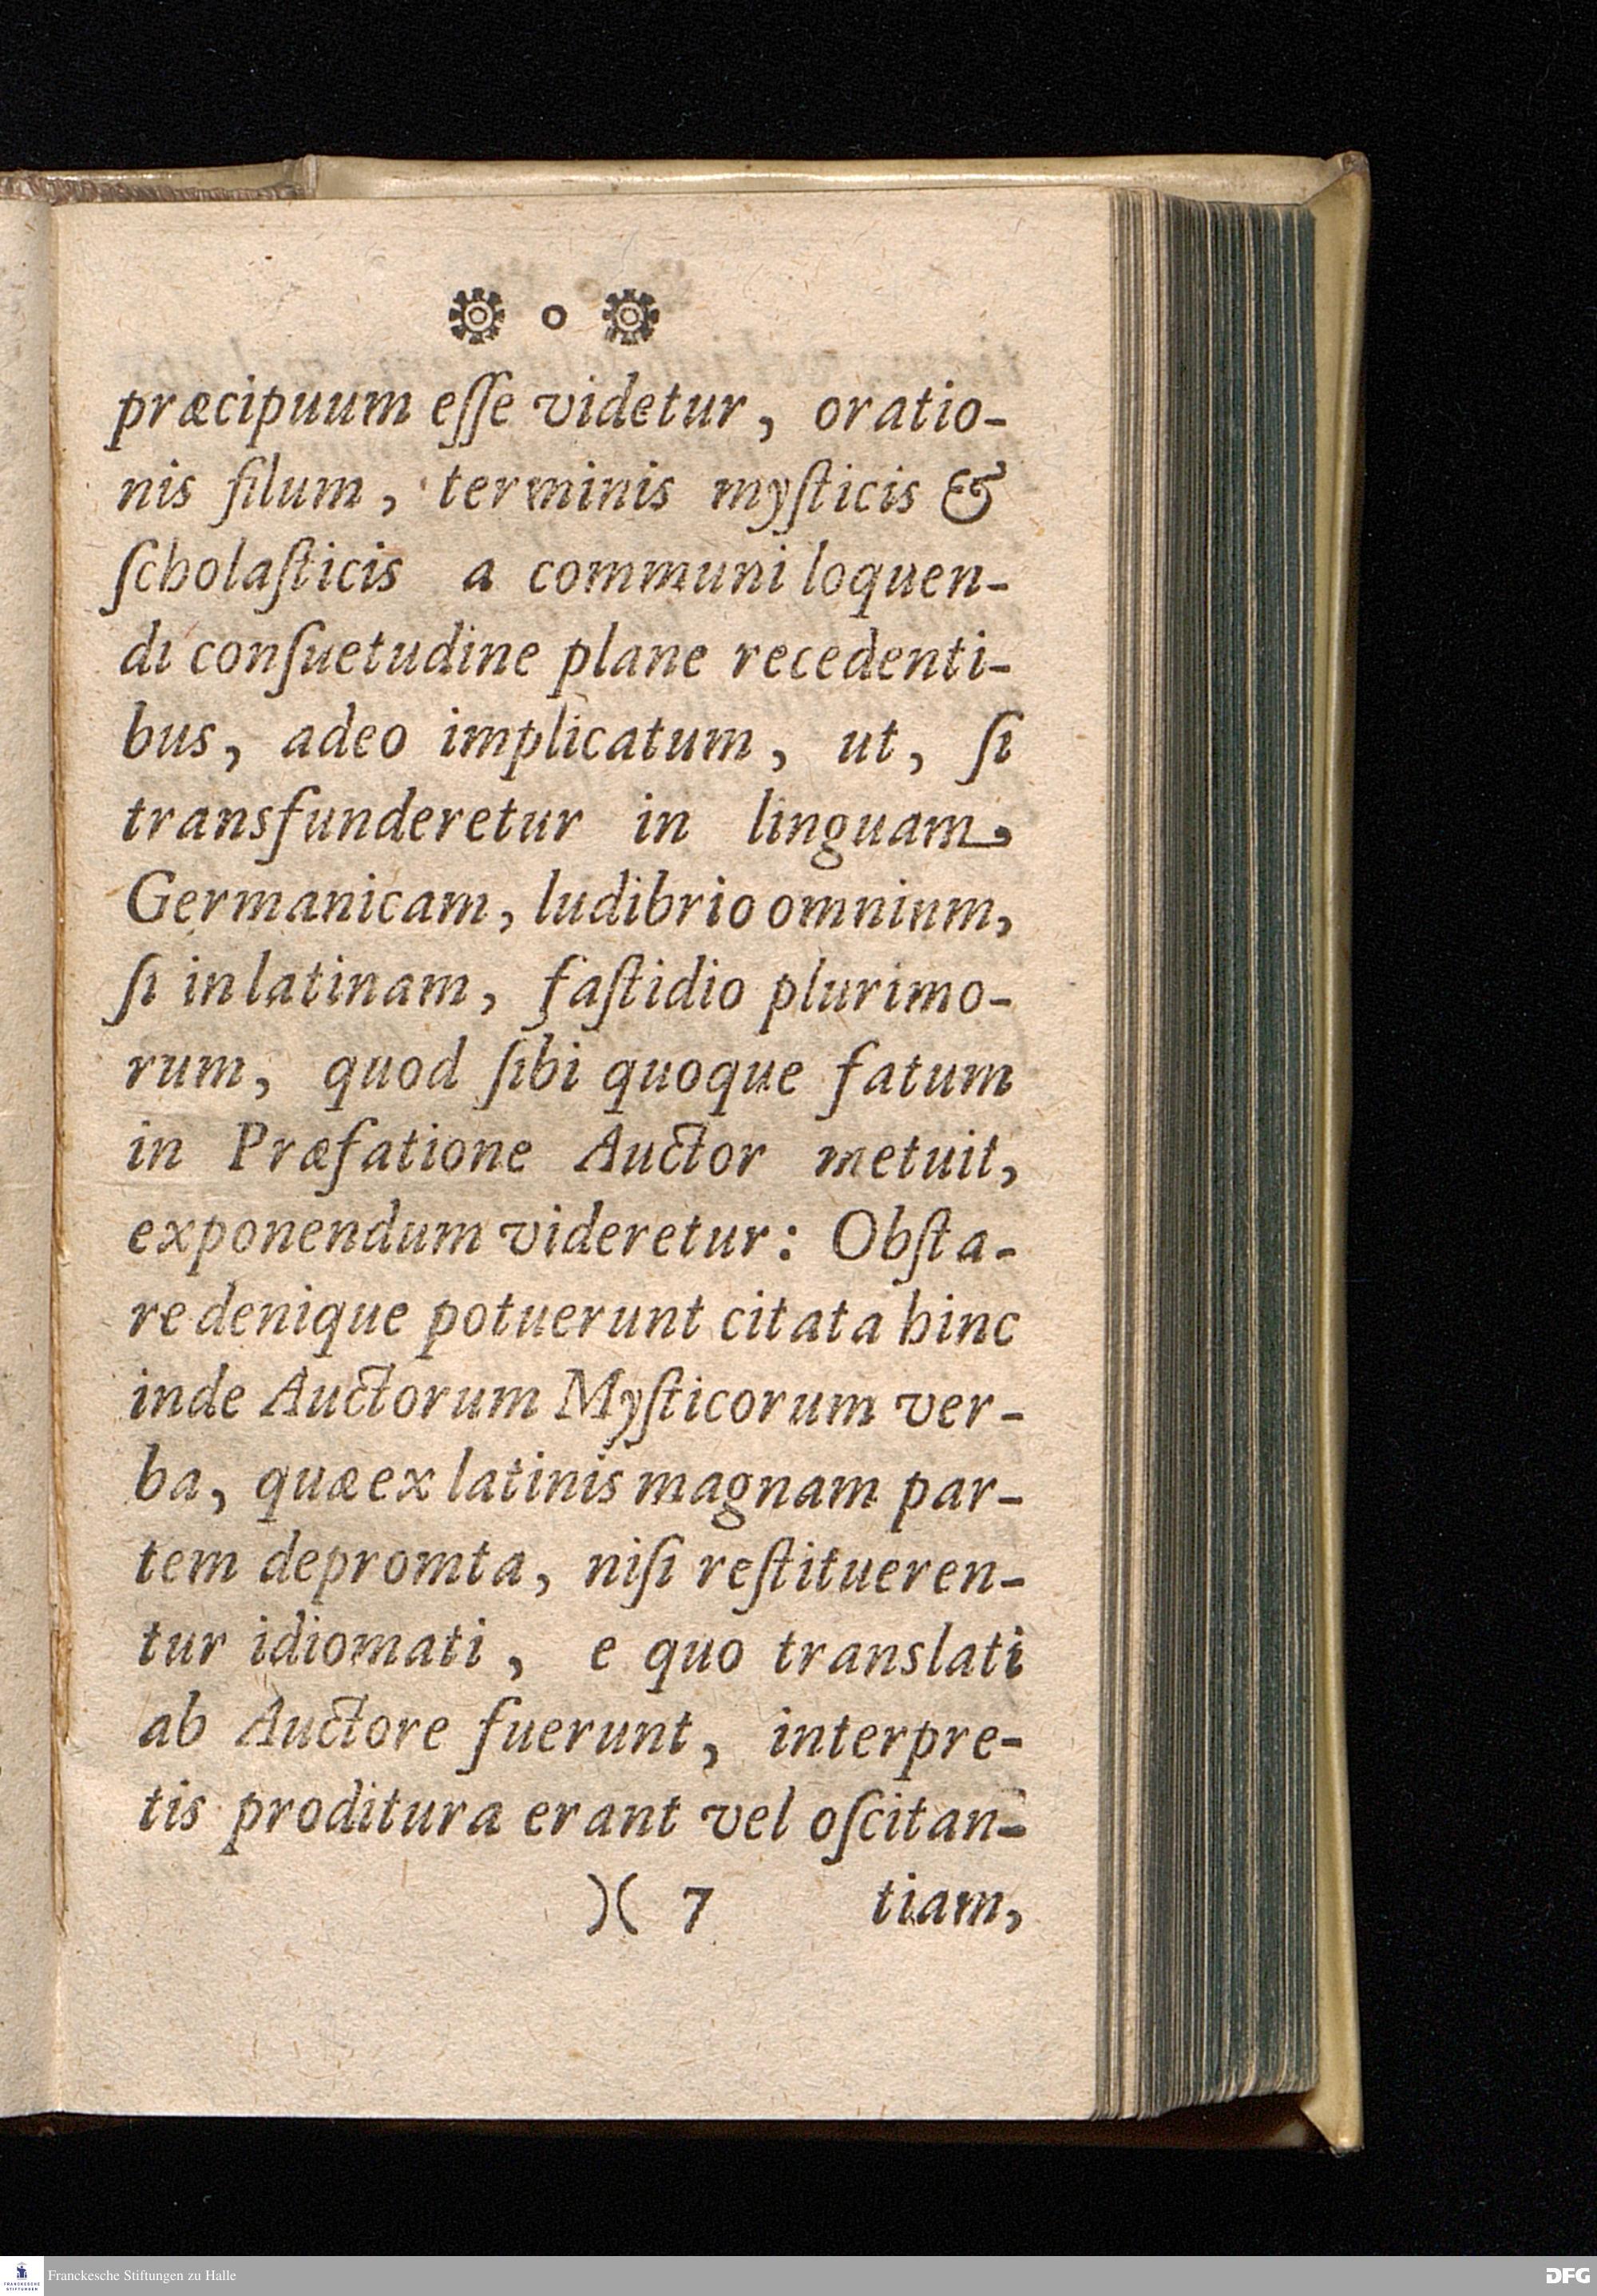 o
præcipuum eſſe videtur, oratio-
nis filum, terminis myſticis &
ſcholaſticis a communi loquen-
di conſuetudine plane recedenti-
bus, adeo implicatum, ut, ſi
transfunderetur in linguam
Germanicam, ludibrio omnium,
ſi in latinam, faſtidio plurimo-
rum, quod ſibi quoque fatum
in Præfatione Auctor metuit,
exponendum videretur: Obſta-
re denique potuerunt citata hinc
inde Auctorum Myſticorum ver-
ba, quæ ex latinis magnam par-
tem depromta, niſi reſtitueren-
tur idiomati, e quo translati
ab Auctore fuerunt, interpre-
tis proditura erant vel oſcitan-
)( 7 tiam,
Franckesche Stiftungen zu Halle
FRANCKESCHE
STIFTUNGEN
DFG